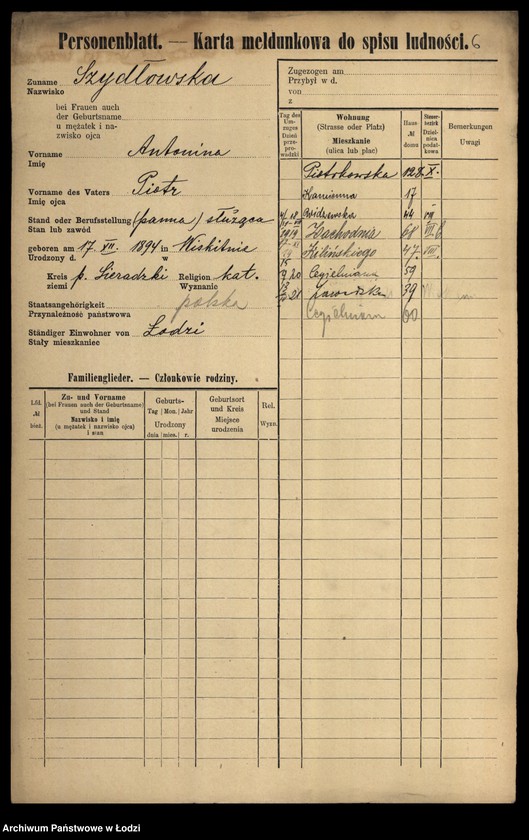 Personenblatt. — Karta meldunkowa do spisu ludności. 6
Zuname Szydłowska
Nazwisko
bei Frauen auch
der Geburtsname
u mężatek i na-
zwisko ojca
Vorname Antonina
Imię
Vorname des Vaters Piotr
Imię ojca
Stand oder Berufsstellung (panna) służąca
Stan lub zawód
geboren am 17. XII. 1894 in Wiskitnie
Urodzony d. w
Kreis p. Sieradzki Religion kat.
ziemi Wyznanie
Staatsangehörigkeit polska
Przynależność państwowa
Ständiger Einwohner von Łodzi
Stały mieszkaniec
Zugezogen am
Przybył w d.
von
z
Tag des Um-zuges Dzień prze-prowadzki
Wohnung (Strasse oder Platz) Mieszkanie (ulica lub plac)
Haus № domu
Steuer-bezirk Dziel-nica podat-kowa
Bemerkungen Uwagi
Piotrkowska 128 X.
Kamienna 17
44 VIII
Zachodnia 68
Kilińskiego 47 VIII
20 Cegielniana 59
21 Zawadzka 39
Cegielniana 60
Familienglieder. — Członkowie rodziny.
Lfd. № bież.
Zu- und Vorname (bei Frauen auch der Geburtsname) und Stand Nazwisko i imię (u mężatek i nazwisko ojca) i stan
Geburts- Tag Mon. Jahr Urodzony dnia mies. r.
Geburtsort und Kreis Miejsce urodzenia
Rel. Wyzn.
Archiwum Państwowe w Łodzi